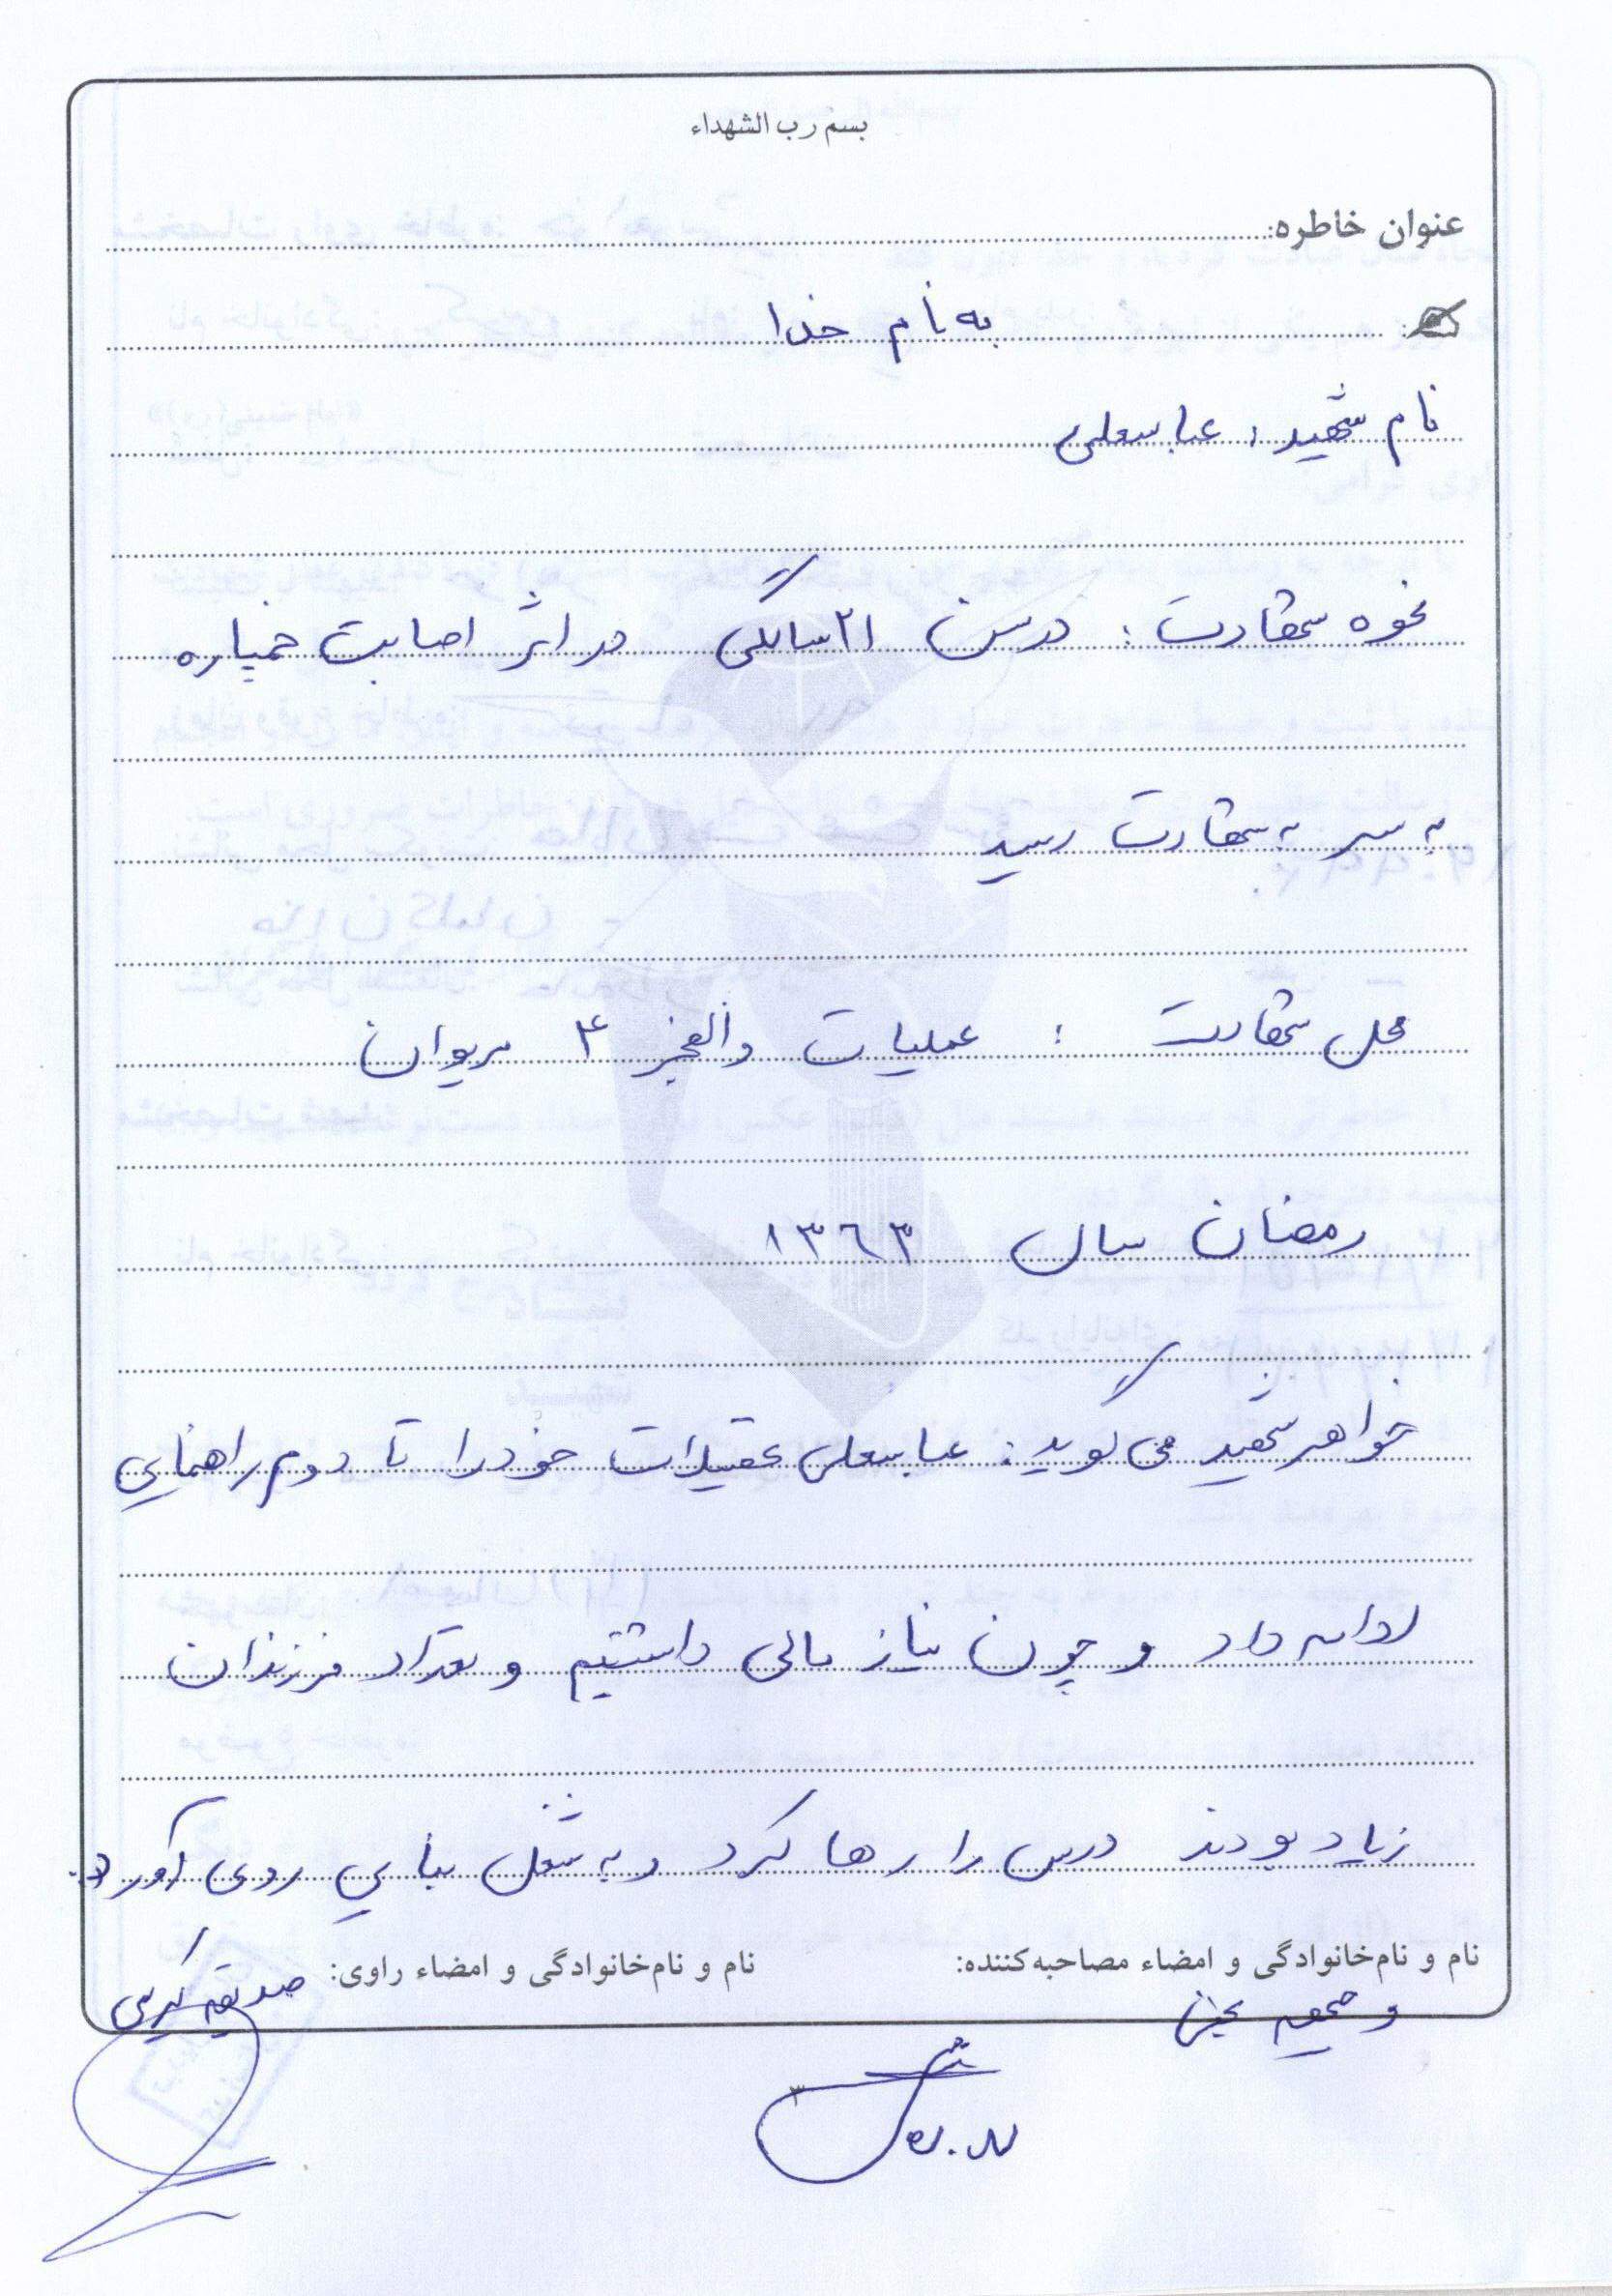 بسم رب الشهداء
عنوان خاطره:
به نام خدا
نام شهید: عباسعلی
نحوه شهادت: در سن ۲۱ سالگی در اثر اصابت خمپاره
به سر به شهادت رسید
محل شهادت: عملیات والفجر ۴ مریوان
رمضان سال ۱۳۶۳
خواهر شهید می گوید: عباسعلی تحصیلات خود را تا دوم راهنمایی
ادامه داد و چون نیاز مالی داشتیم و تعداد فرزندان
زیاد بودند درس را رها کرد و به شغل بنایی روی آورد.
نام و نام‌خانوادگی و امضاء مصاحبه‌کننده:
نام و نام‌خانوادگی و امضاء راوی: صدیقه کریمی
۳